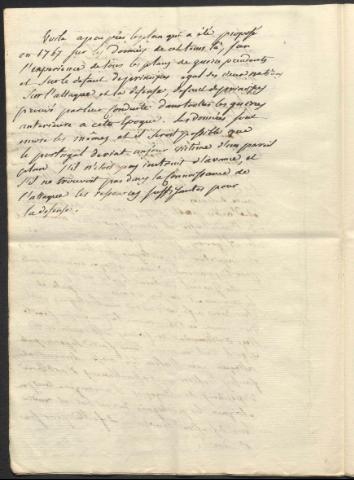 Voila apeu près le plan qui a été proposé
en 1767 sur les données de ces tems là, sur
l'experience de tous les plans de guerre precedents
et sur le defaut de principes egal des deux nations
sur l'attaque et la defense, defaut de principes
prouvé par leur conduite dans toutes les guerres
anterieures a cette Epoque. Les données sont
encore les mêmes, et il seroit possible que
le portugal devint un jour victime d'un pareil
plan s'il n'étoit pas instruit d'avance et
s'il ne trouvoit pas dans la connoissance de
l'attaque les ressources suffisantes pour
la defense.